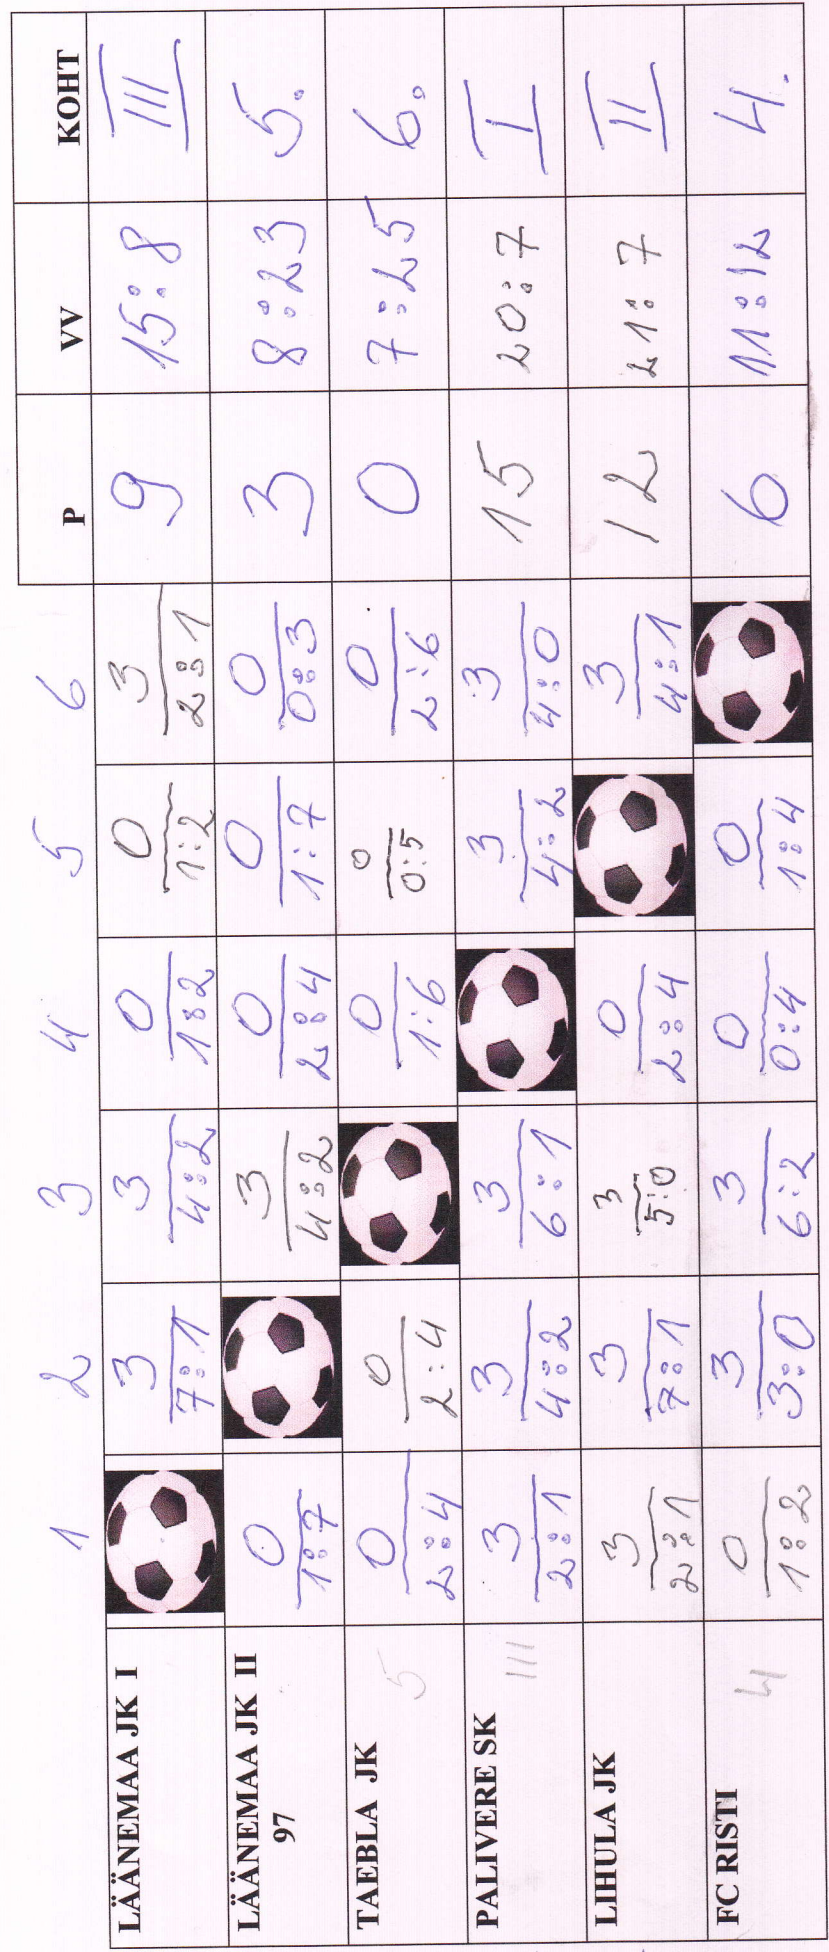 1 2 3 4 5 6 P VV KOHT
LÄÄNEMAA JK I 3 7:1 3 4:2 0 1:2 0 1:2 3 2:1 9 15:8 III
LÄÄNEMAA JK II 97 0 1:7 3 4:2 0 2:4 0 1:7 0 0:3 3 8:23 5.
TAEBLA JK 5 0 2:4 0 2:4 0 1:6 0 0:5 0 2:6 0 7:25 6.
PALIVERE SK III 3 2:1 3 4:2 3 6:1 3 4:2 3 4:0 15 20:7 I
LIHULA JK 3 2:1 3 7:1 3 5:0 0 2:4 3 4:1 12 21:7 II
FC RISTI 4 0 1:2 3 3:0 3 6:2 0 0:4 0 1:4 6 11:12 4.